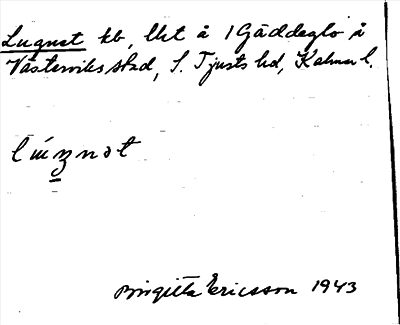 Lugnet hb, lht å 1 Gäddeglo i
Västerviks stad, S. Tjusts hd, Kalmar l.
Birgitta Ericsson 1943